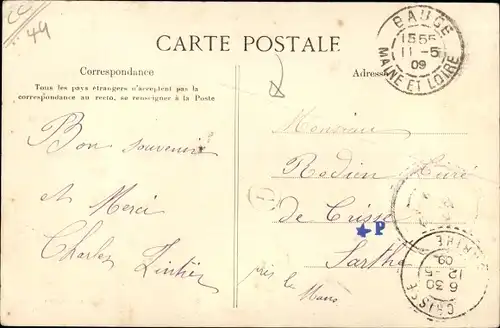 49
BAUGÉ
15 55
11 - 5
09
MAINE ET LOIRE
CARTE POSTALE
Correspondance
Tous les pays étrangers n'acceptent pas la
correspondance au recto, se renseigner à la Poste
Adresse
Bon souvenir
et Merci
Charles
Monsieur
Curé
de Crissé
Sarthe
près le Mans
P
CRISSÉ
6 30
12 - 5
09
SARTHE